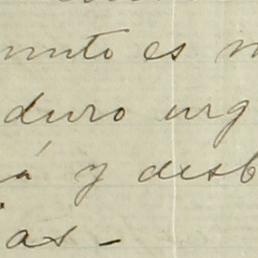 munto es m
duro urg
á y desb
as -